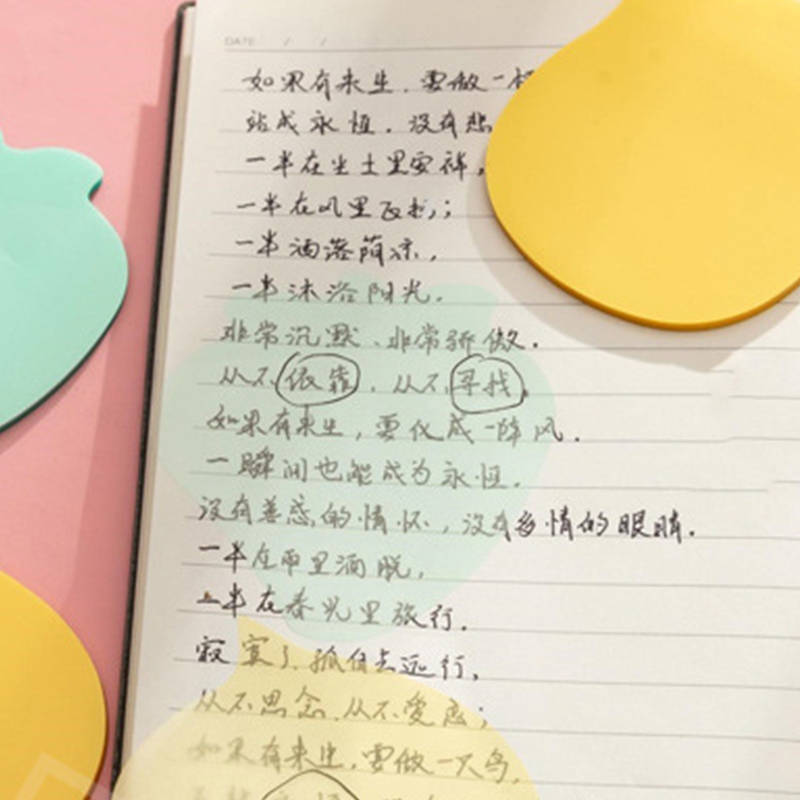 DATE / /
如果有来生,要做一棵
站成永恒,没有悲
一半在尘土里安祥,
一半在风里飞扬;
一半洒落荫凉,
一半沐浴阳光。
非常沉默、非常骄傲。
从不依靠,从不寻找。
如果有来生,要化成一阵风。
一瞬间也能成为永恒。
没有善感的情怀,没有多情的眼睛。
一半在雨里洒脱,
一半在春光里旅行。
寂寞了,孤自去远行,
从不思念,从不爱恋;
如果有来生,要做一只鸟,